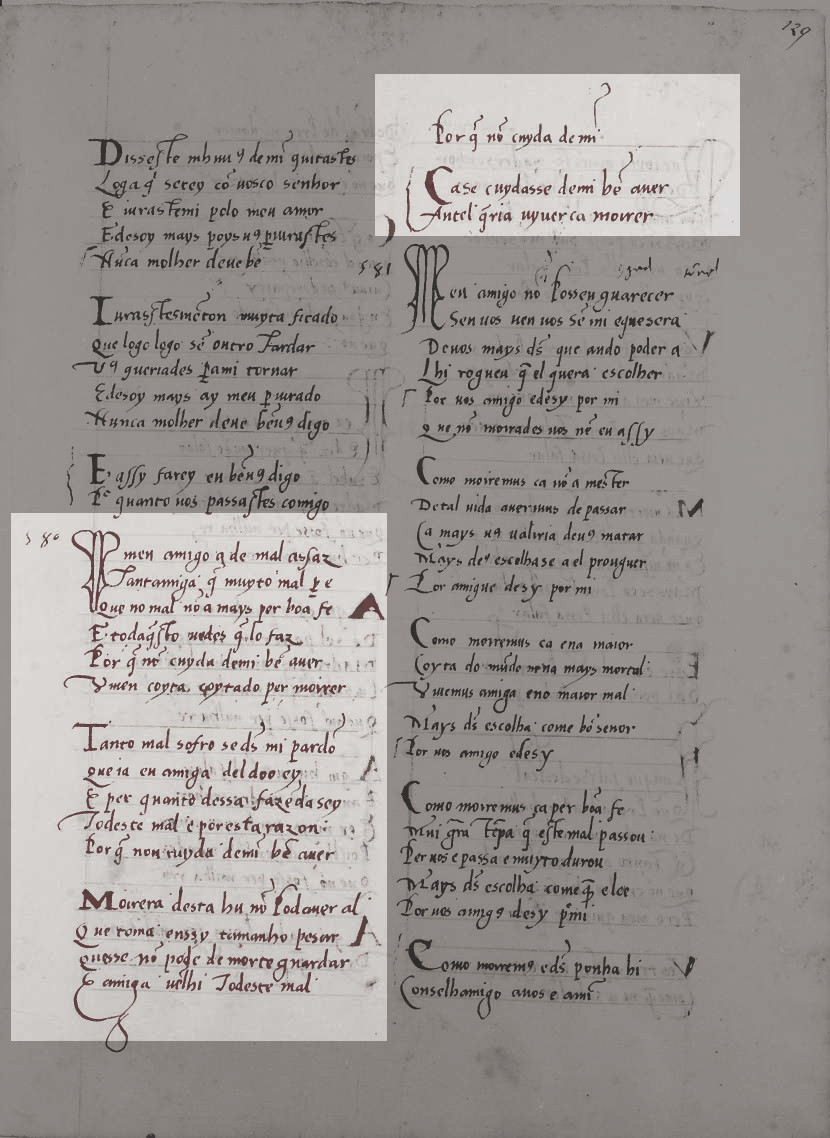 129
Dissesste mh nu9 de mi quitastes
Loga q̃ serey cõ uosco senhor
E iurastemi polo meu amor
E desoy mays poys u9 p̱iurastes
Nũca molher deue bẽ
Iurasstesmẽton muyta ficado
Que logo logo sẽ outro Tardar
U9 queriades p̱ami tornar
E desoy mays ay meu p̱iurado
Nunca molher deue bẽu9 digo
E assy farey eu bẽu9 digo
Por quanto uos passastes comigo
580
Meu amigo a de mal assaz
Tantamiga q̃ muyto mal p̱ e
Que no mal nõ a mays per bõa fe
E todaq̃sto uedes q̃ lo faz
Por q̃ nõ cuyda demi bẽ auer
Viuen coyta coytado per moirer
Tanto mal sofro se ds̃ mi pardõ
Que ia eu amiga del doo ey
E per quanto dessa fazẽda sey
Todeste mal e por esta razon
Por q̃ non cuyda demi bẽ auer
Moirera desta hu nõ Podauer al
Que toma enssy tamanho pesar
Quesse nõ pode de morte guardar
E amiga uẽlhi Todeste mal
Por q̃ nõ cuyda de mi
Ca se cuydasse demi bẽ auer
Antel q̃ria uyuer ca moirer
581
Meu amigo nõ Posseu guarecer
Sen uos nen uos sẽ mi e que sera
De uos mays ds̃ que ando poder a
Lhi rogueu q̃ el quera escolher
Por uos amigo e desy por mi
Que nõ moirades uos nẽ eu assy
Como moiremus ca nõ a mester
De tal uida auermus de passar
Ca mays u9 ualiria deu9 matar
Mays de9 escolha se a el prouguer
Por amigue desy por mi
Como moiremus ca ena maior
Coyta do mũdo nena mays mortal
Viuemus amiga eno maior mal
Mays ds̃ escolha come bõ senor
Por uos amigo e desy
Como moiremus ca per bõa fe
Mui grã tẽpa q̃ este mal passou
Per uos e passa e muyto durou
Mays ds̃ escolha come q̃ el ee
Por uos amig9 desy p̱ mi
Como moirem9 e ds̃ ponha hi
Conselhamigo a uos e a mi